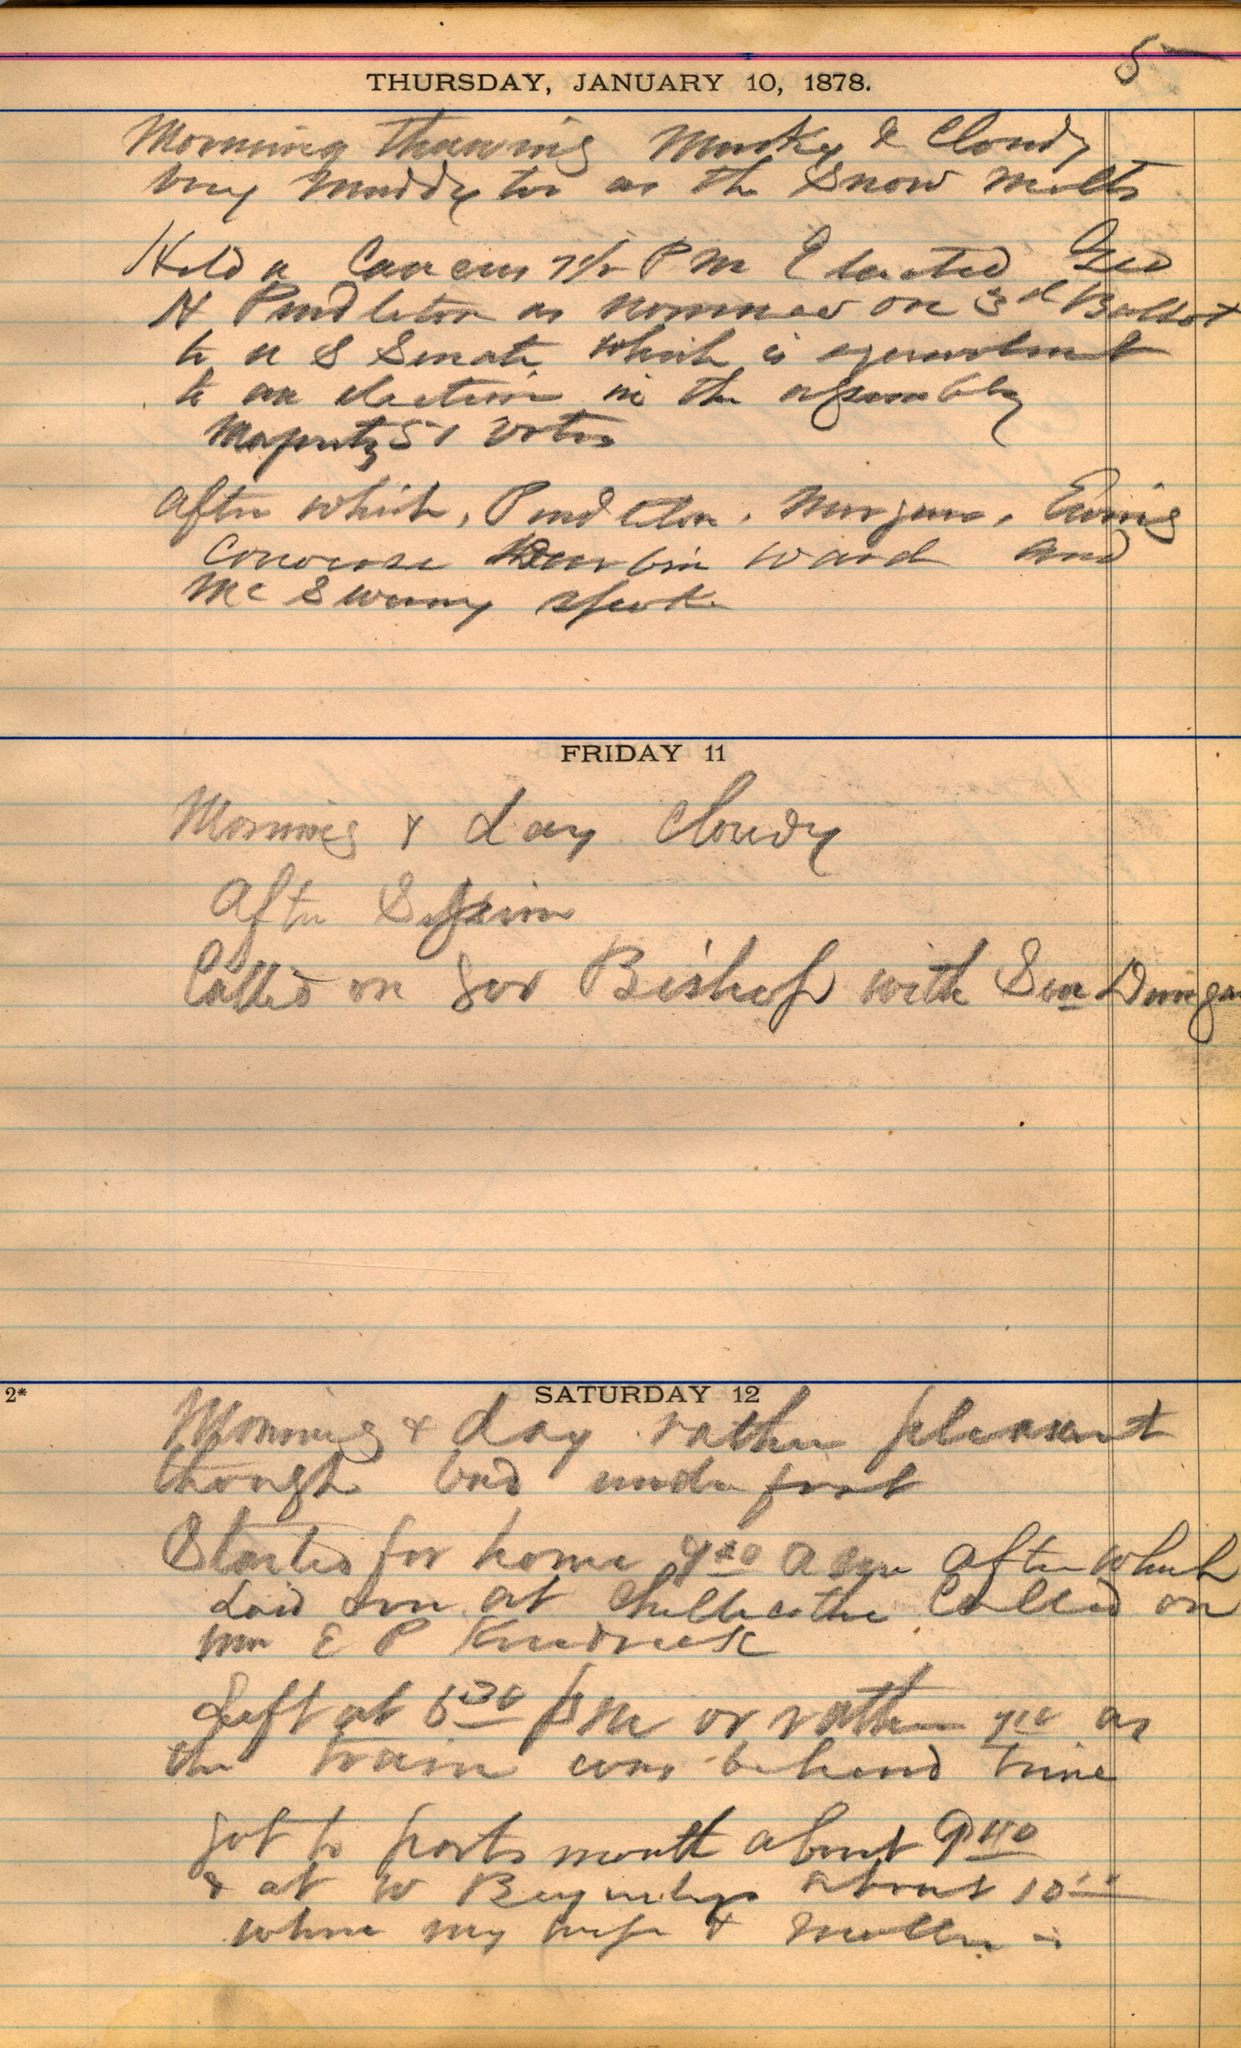 5
THURSDAY, JANUARY 10, 1878.
Morning thawing Murky & Cloudy
very muddy too as the Snow melts
Held a Caucus 7½ P M Elected Geo
H Pendleton as nominee on 3d Ballot
to U S Senate which is equivalent
to an election in the assembly
Majority 51 votes
After which, Pendleton, Morgan, Ewing
Converse Durbin Ward and
McSweeny spoke
FRIDAY 11
Morning & day cloudy
After Session
Called on Gov Bishop with Sen Dungan
2*
SATURDAY 12
Morning & day rather pleasant
though bad under foot
Started for home a m after which
Laid over at Chillicothe Called on
Mr E P Kendrick
Left at 6 30 P M or rather as
the train was behind time
got to Portsmouth about 9
& at W about 10
where my wife & Mother is